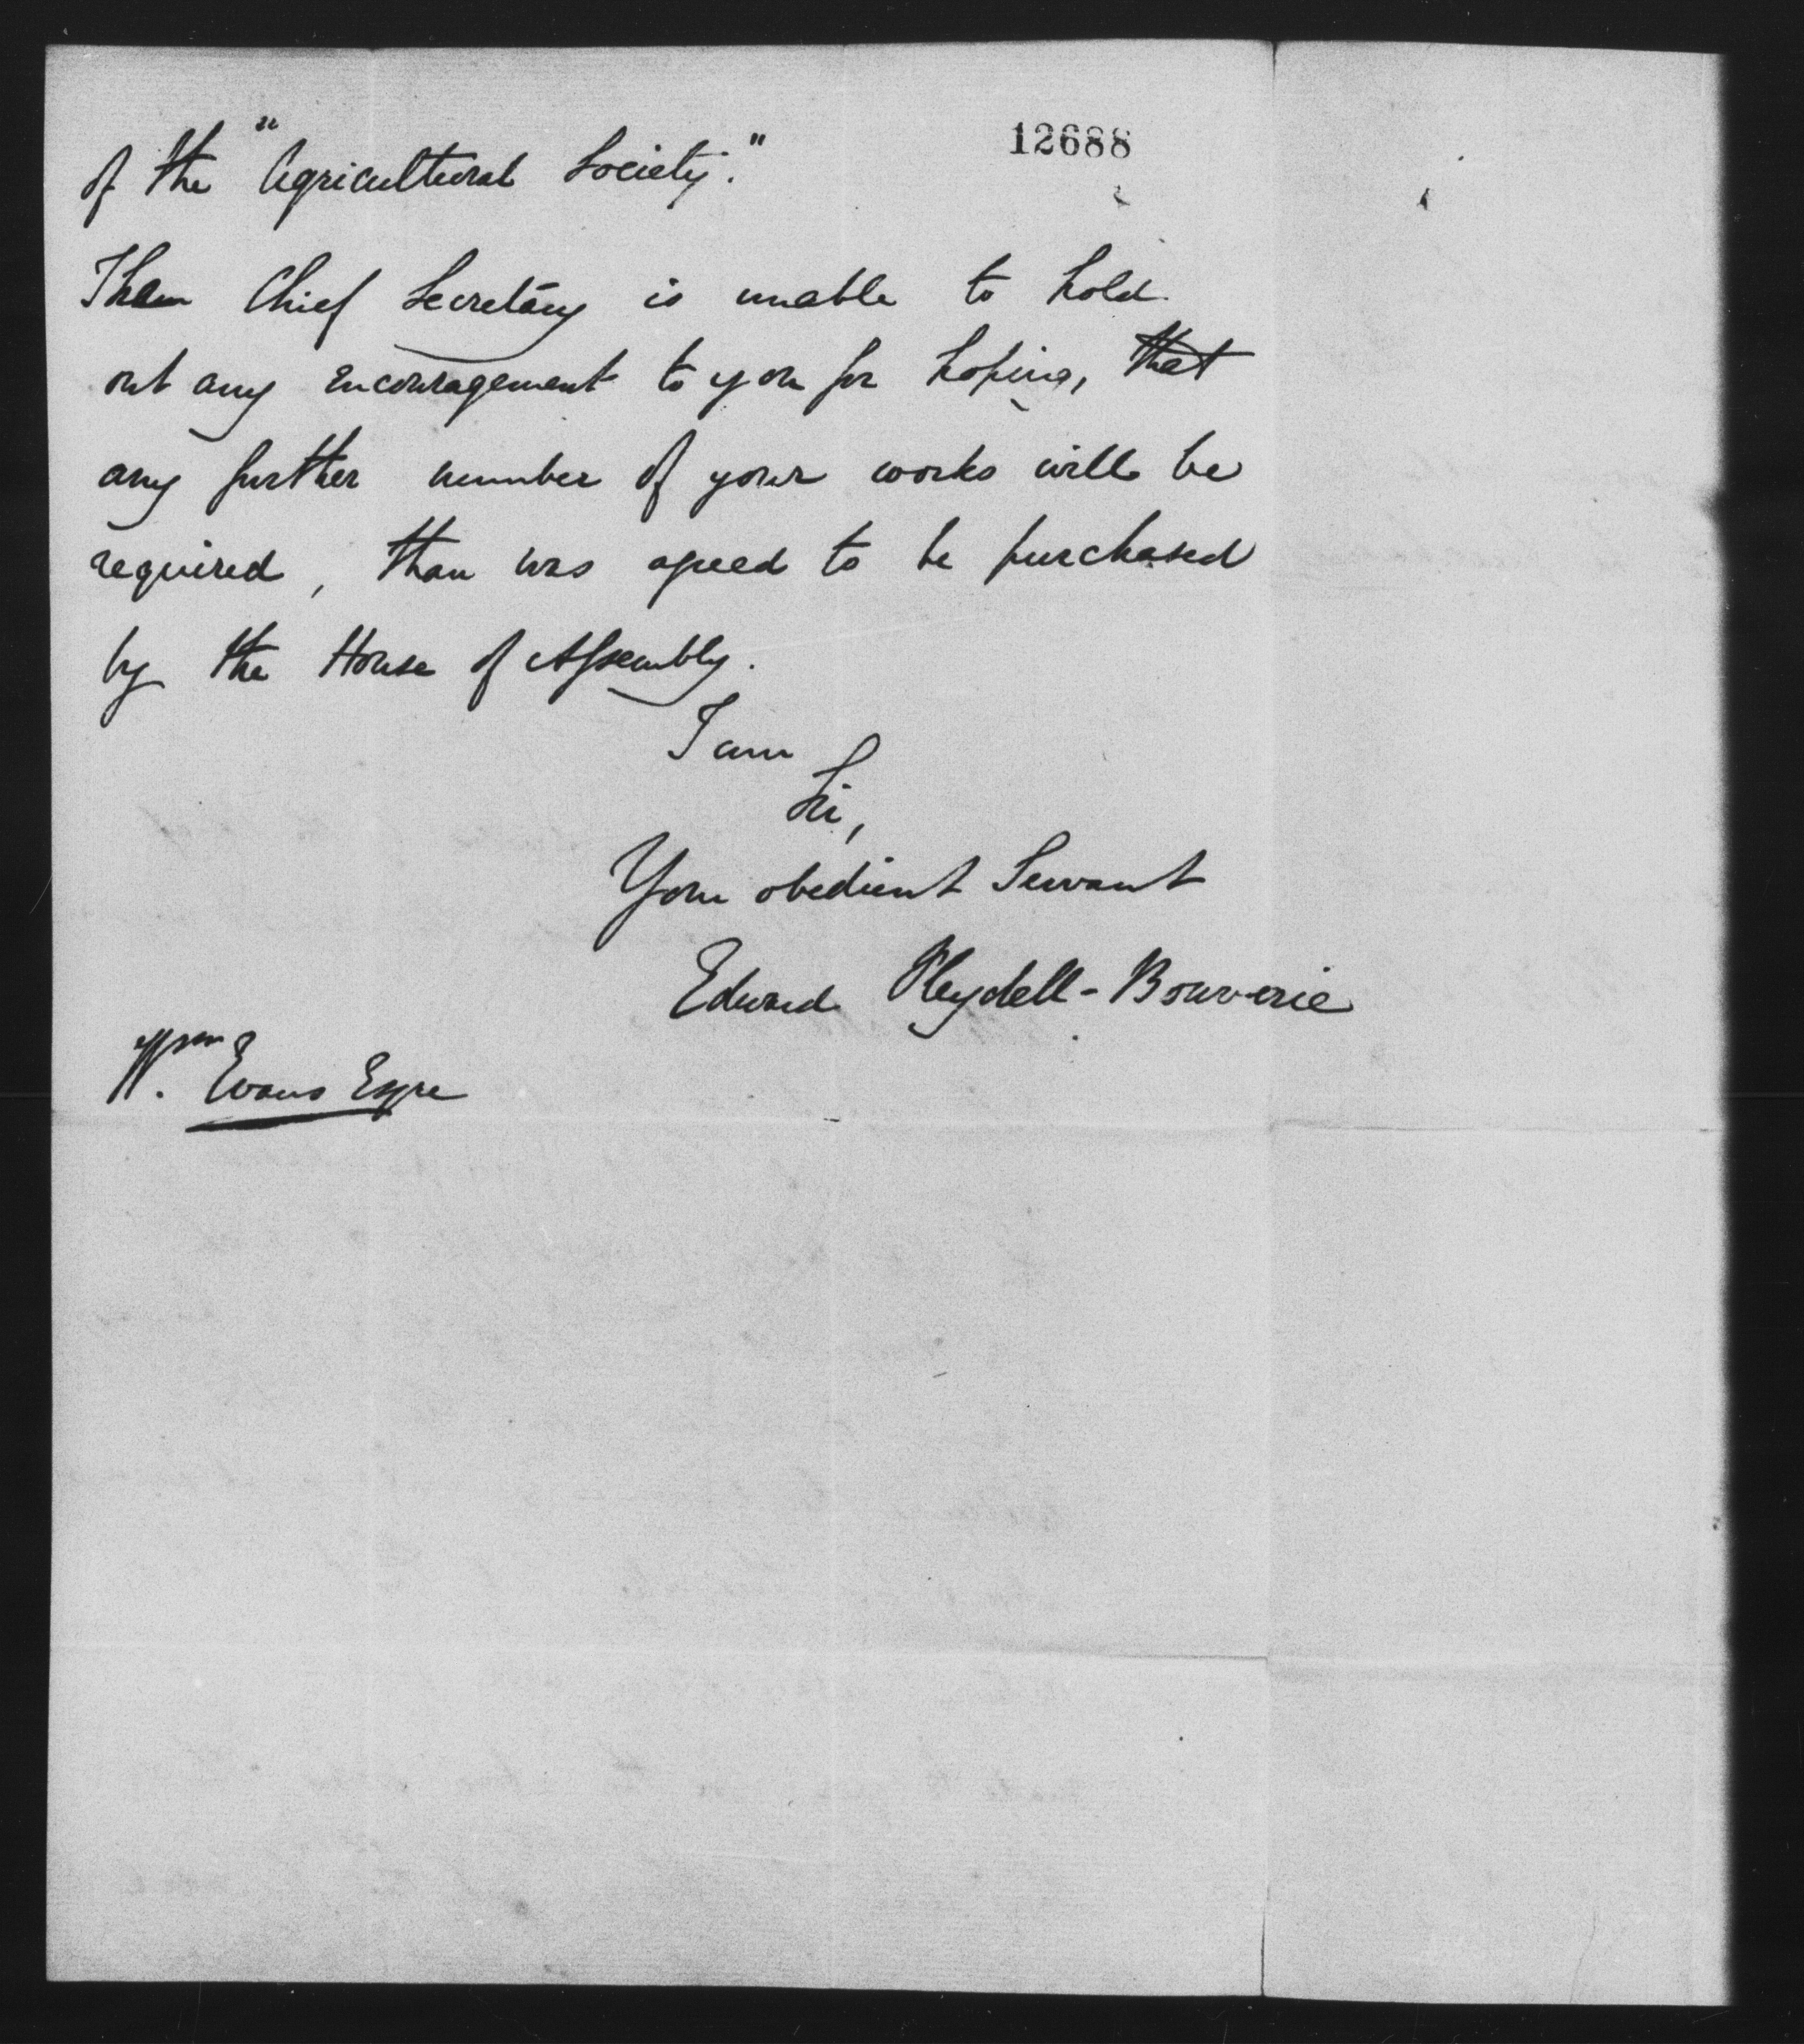 12688
of the "Agricultural Society."
The Chief Secretary is unable to hold
out any encouragement to you for hoping, that
any further number of your works will be
required, than was agreed to be purchased
by the House of Assembly.
I am
Sir,
Your obedient Servant
Edward Pleydell-Bouverie
Wm. Evans Esqre